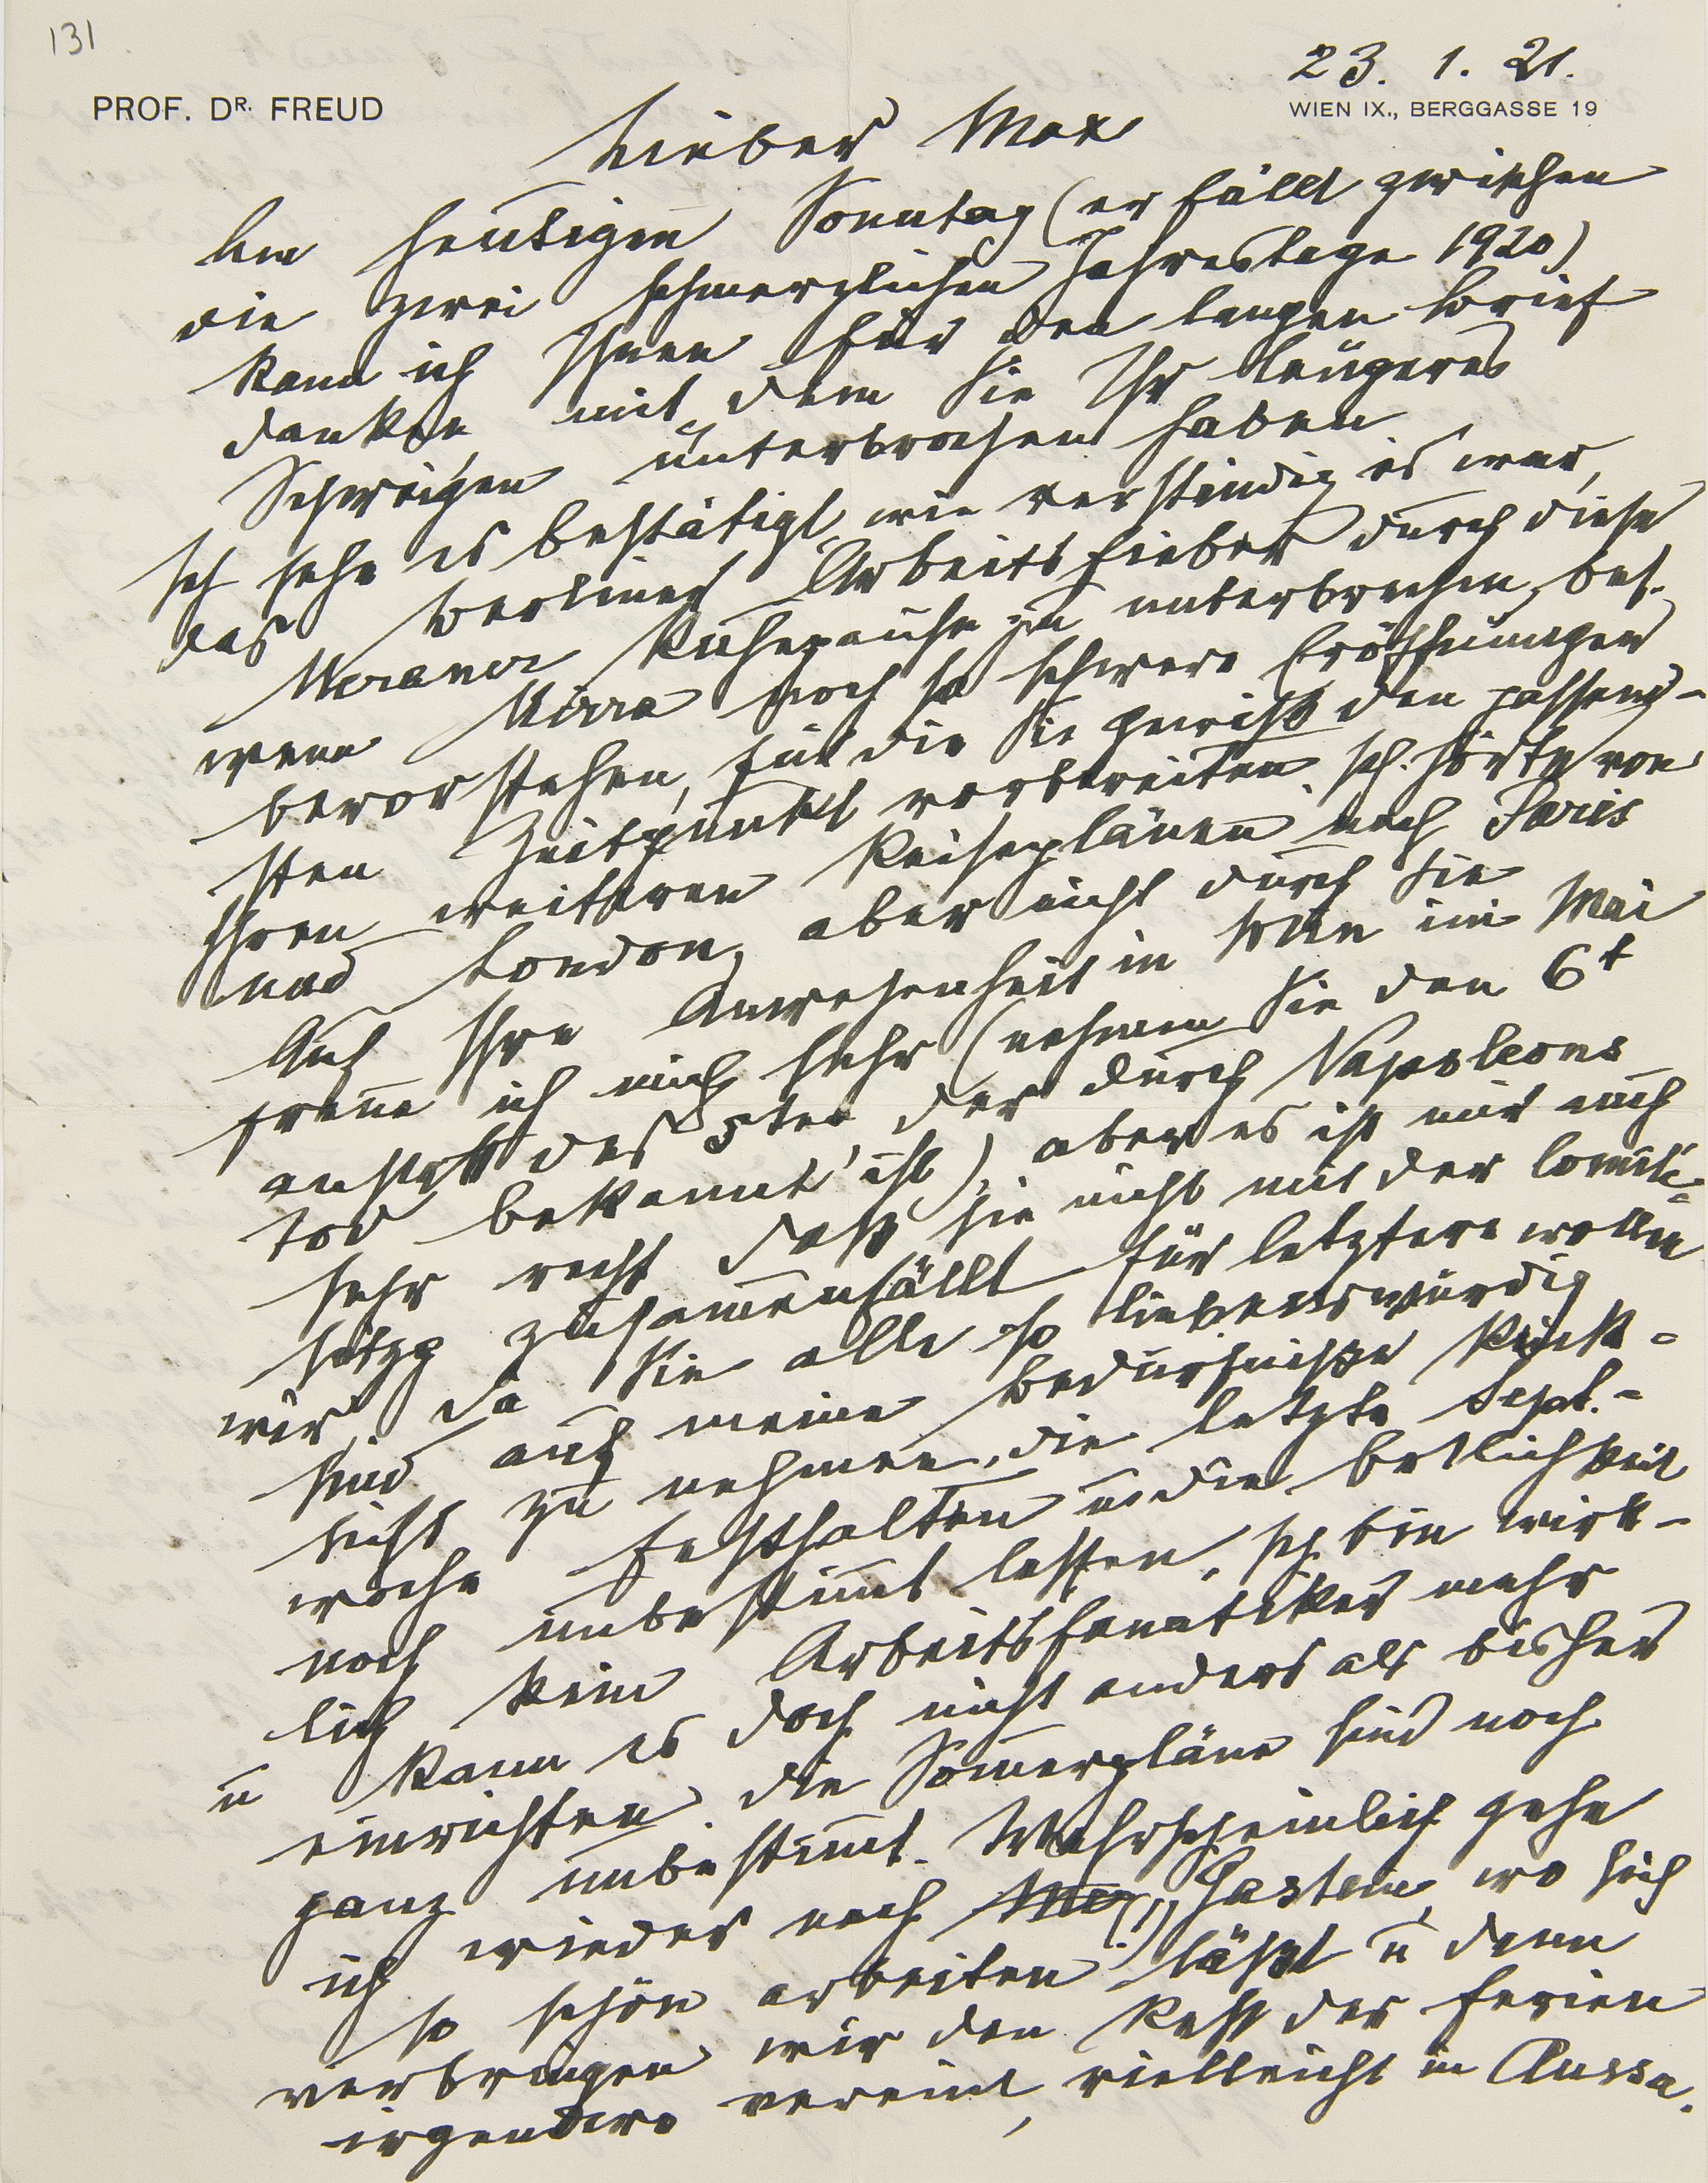 131
23. 1. 21.
PROF. DR. FREUD
WIEN IX., BERGGASSE 19
Lieber Max
Am heutigen Sonntag (er fällt zwischen
die zwei schmerzlichen Jahrestage 1920)
kann ich Ihnen für den langen Brief
danken, mit dem Sie Ihr längeres
Schweigen unterbrochen haben
Ich sehe es bestätigt, wie verständig es war,
das Berliner Arbeitsfieber durch diese
Meraner Ruhepause zu unterbrechen, bes.
wenn Mirra noch so schwere Eröffnungen
bevorstehen, für die Sie gewiß den passend-
sten Zeitpunkt vorbereiten. Ich hörte von
Ihren weiteren Reiseplänen nach Paris
und London, aber nicht durch Sie
Auf Ihre Anwesenheit in Wien im Mai
freue ich mich sehr (nehmen Sie den 6t
anstatt des 5ten, der durch Napoleons
Tod bekannt ist), aber es ist mir auch
sehr recht daß sie nicht mit der Comité-
sitzg zusammenfällt. Für letztere wollen
wir, da Sie alle so liebenswürdig
sind auf meine Bedürfnisse Rück-
sicht zu nehmen, die letzte Sept.-
woche festhalten u die Örtlichkeit
noch unbestimmt lassen. Ich bin wirk-
lich kein Arbeitsfanatiker mehr
u kann es doch nicht anders als bisher
einrichten. Die Somerpläne sind noch
ganz unbestimmt. Wahrscheinlich gehe
ich wieder nach Gastein, wo sich
so schön arbeiten läßt u dann
verbringen wir den Rest der Ferien
irgendwo vereint, vielleicht in Aussee.